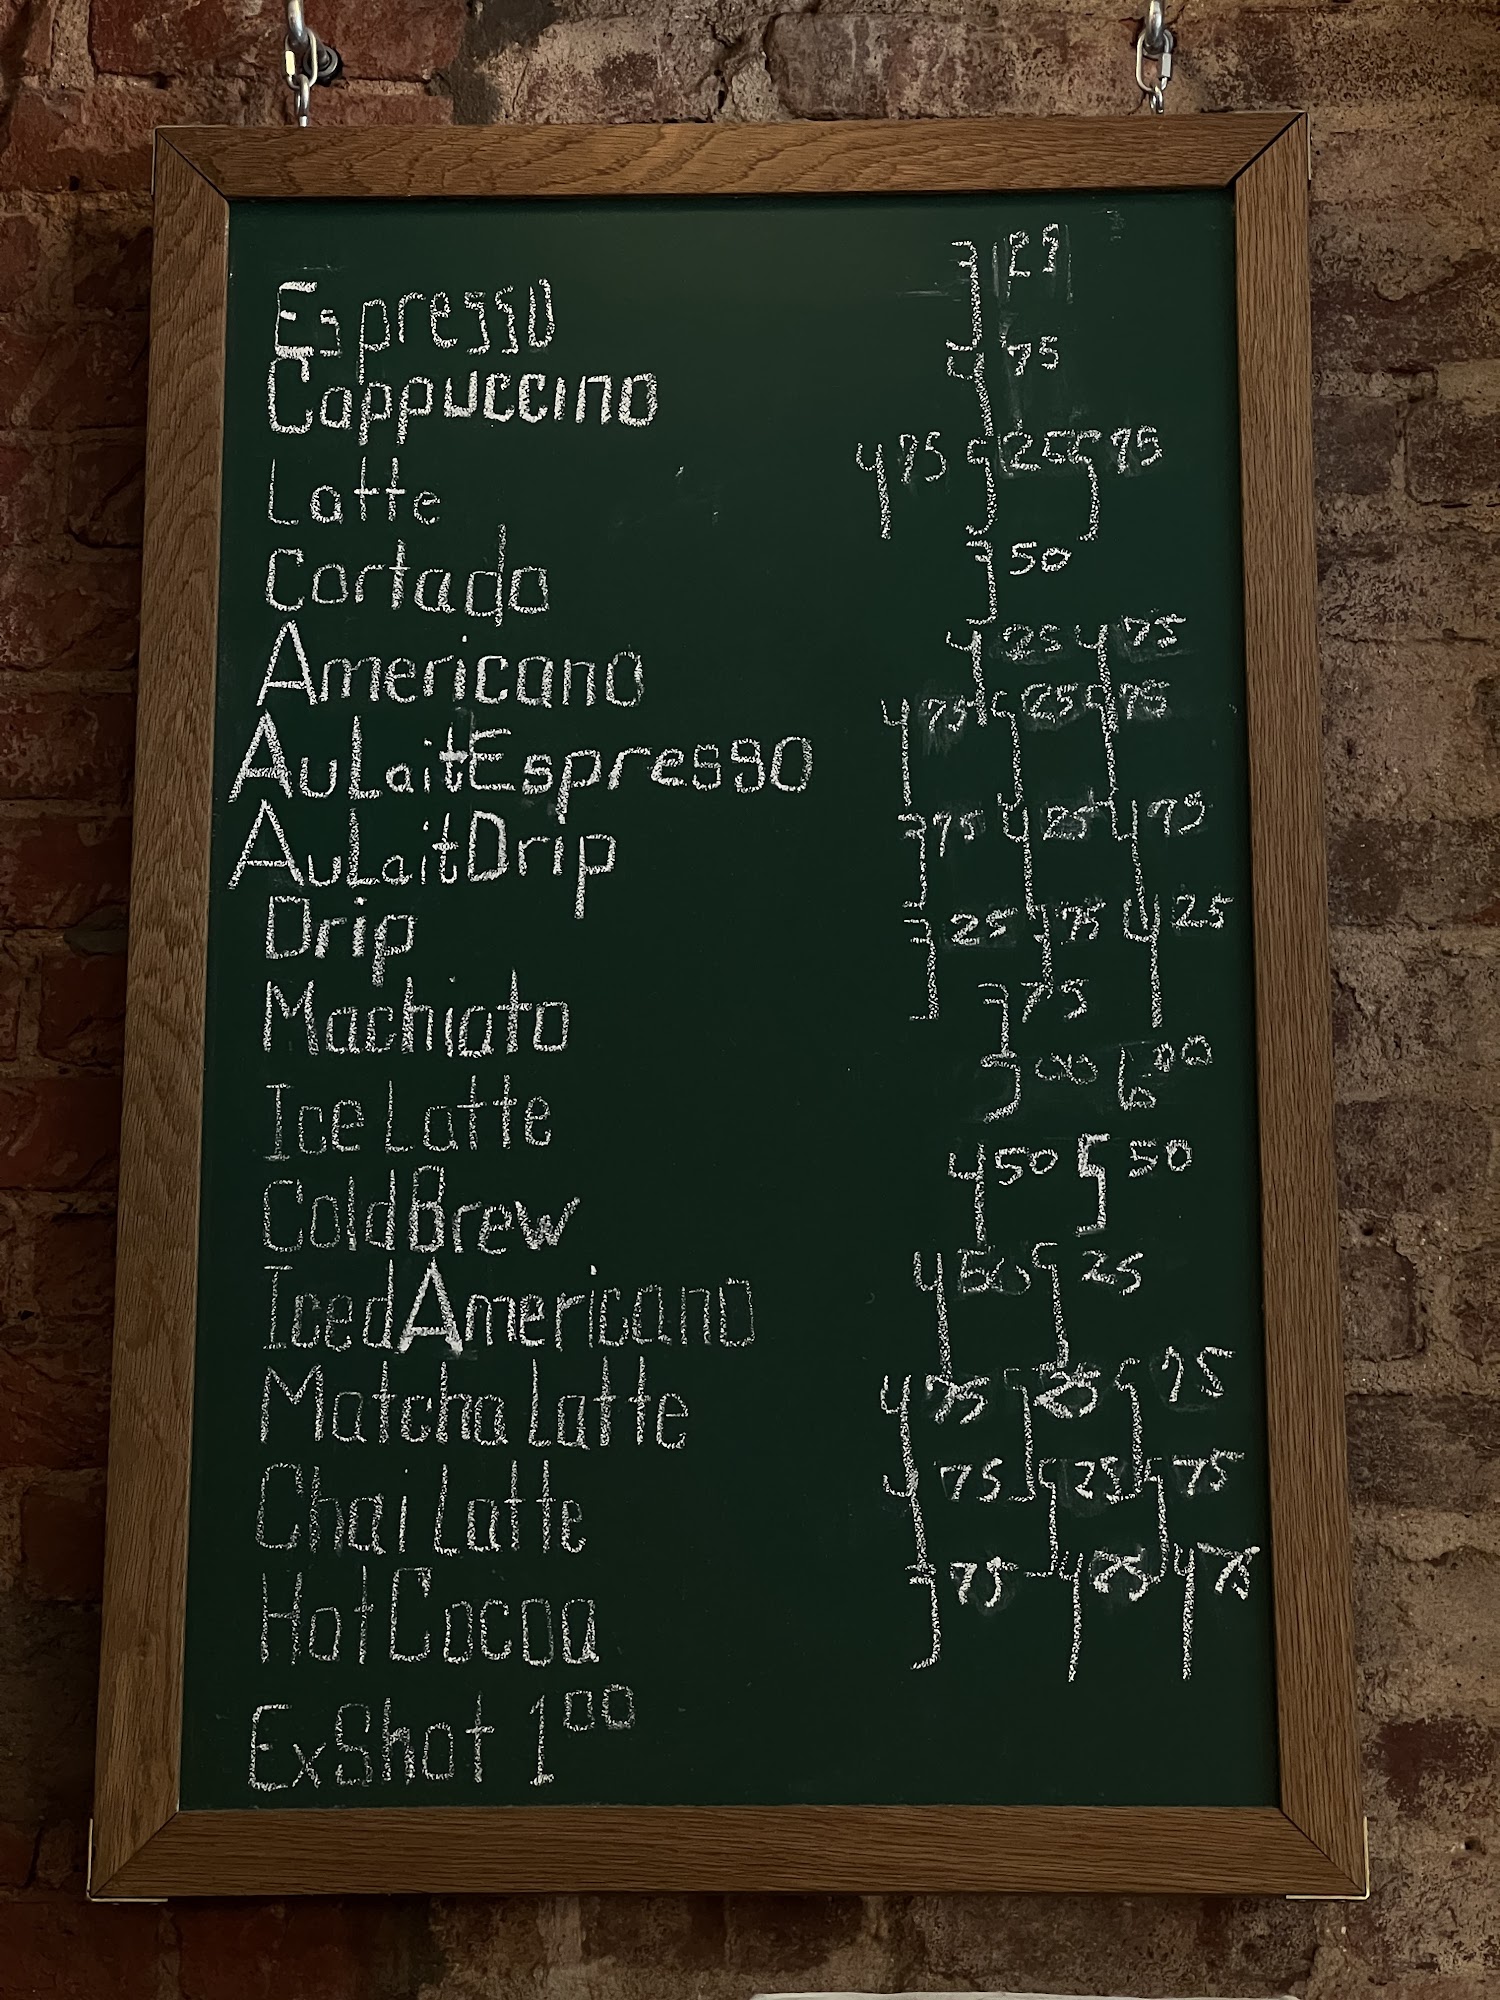 Espresso 3 25
Cappuccino 3 75
Latte 4 75 5 25 5 75
Cortado 3 50
Americano 4 25 4 75
AuLaitEspresso 4 75 5 25 5 75
AuLaitDrip 3 75 4 25 4 75
Drip 3 25 3 75 4 25
Machiato 3 75
Ice Latte 5 00 6 00
ColdBrew 4 50 5 50
IcedAmericano 4 50 5 25
Matcha Latte 4 75 5 25 5 75
Chai Latte 4 75 5 25 5 75
HotCocoa 3 75 4 25 4 75
ExShot 1 00